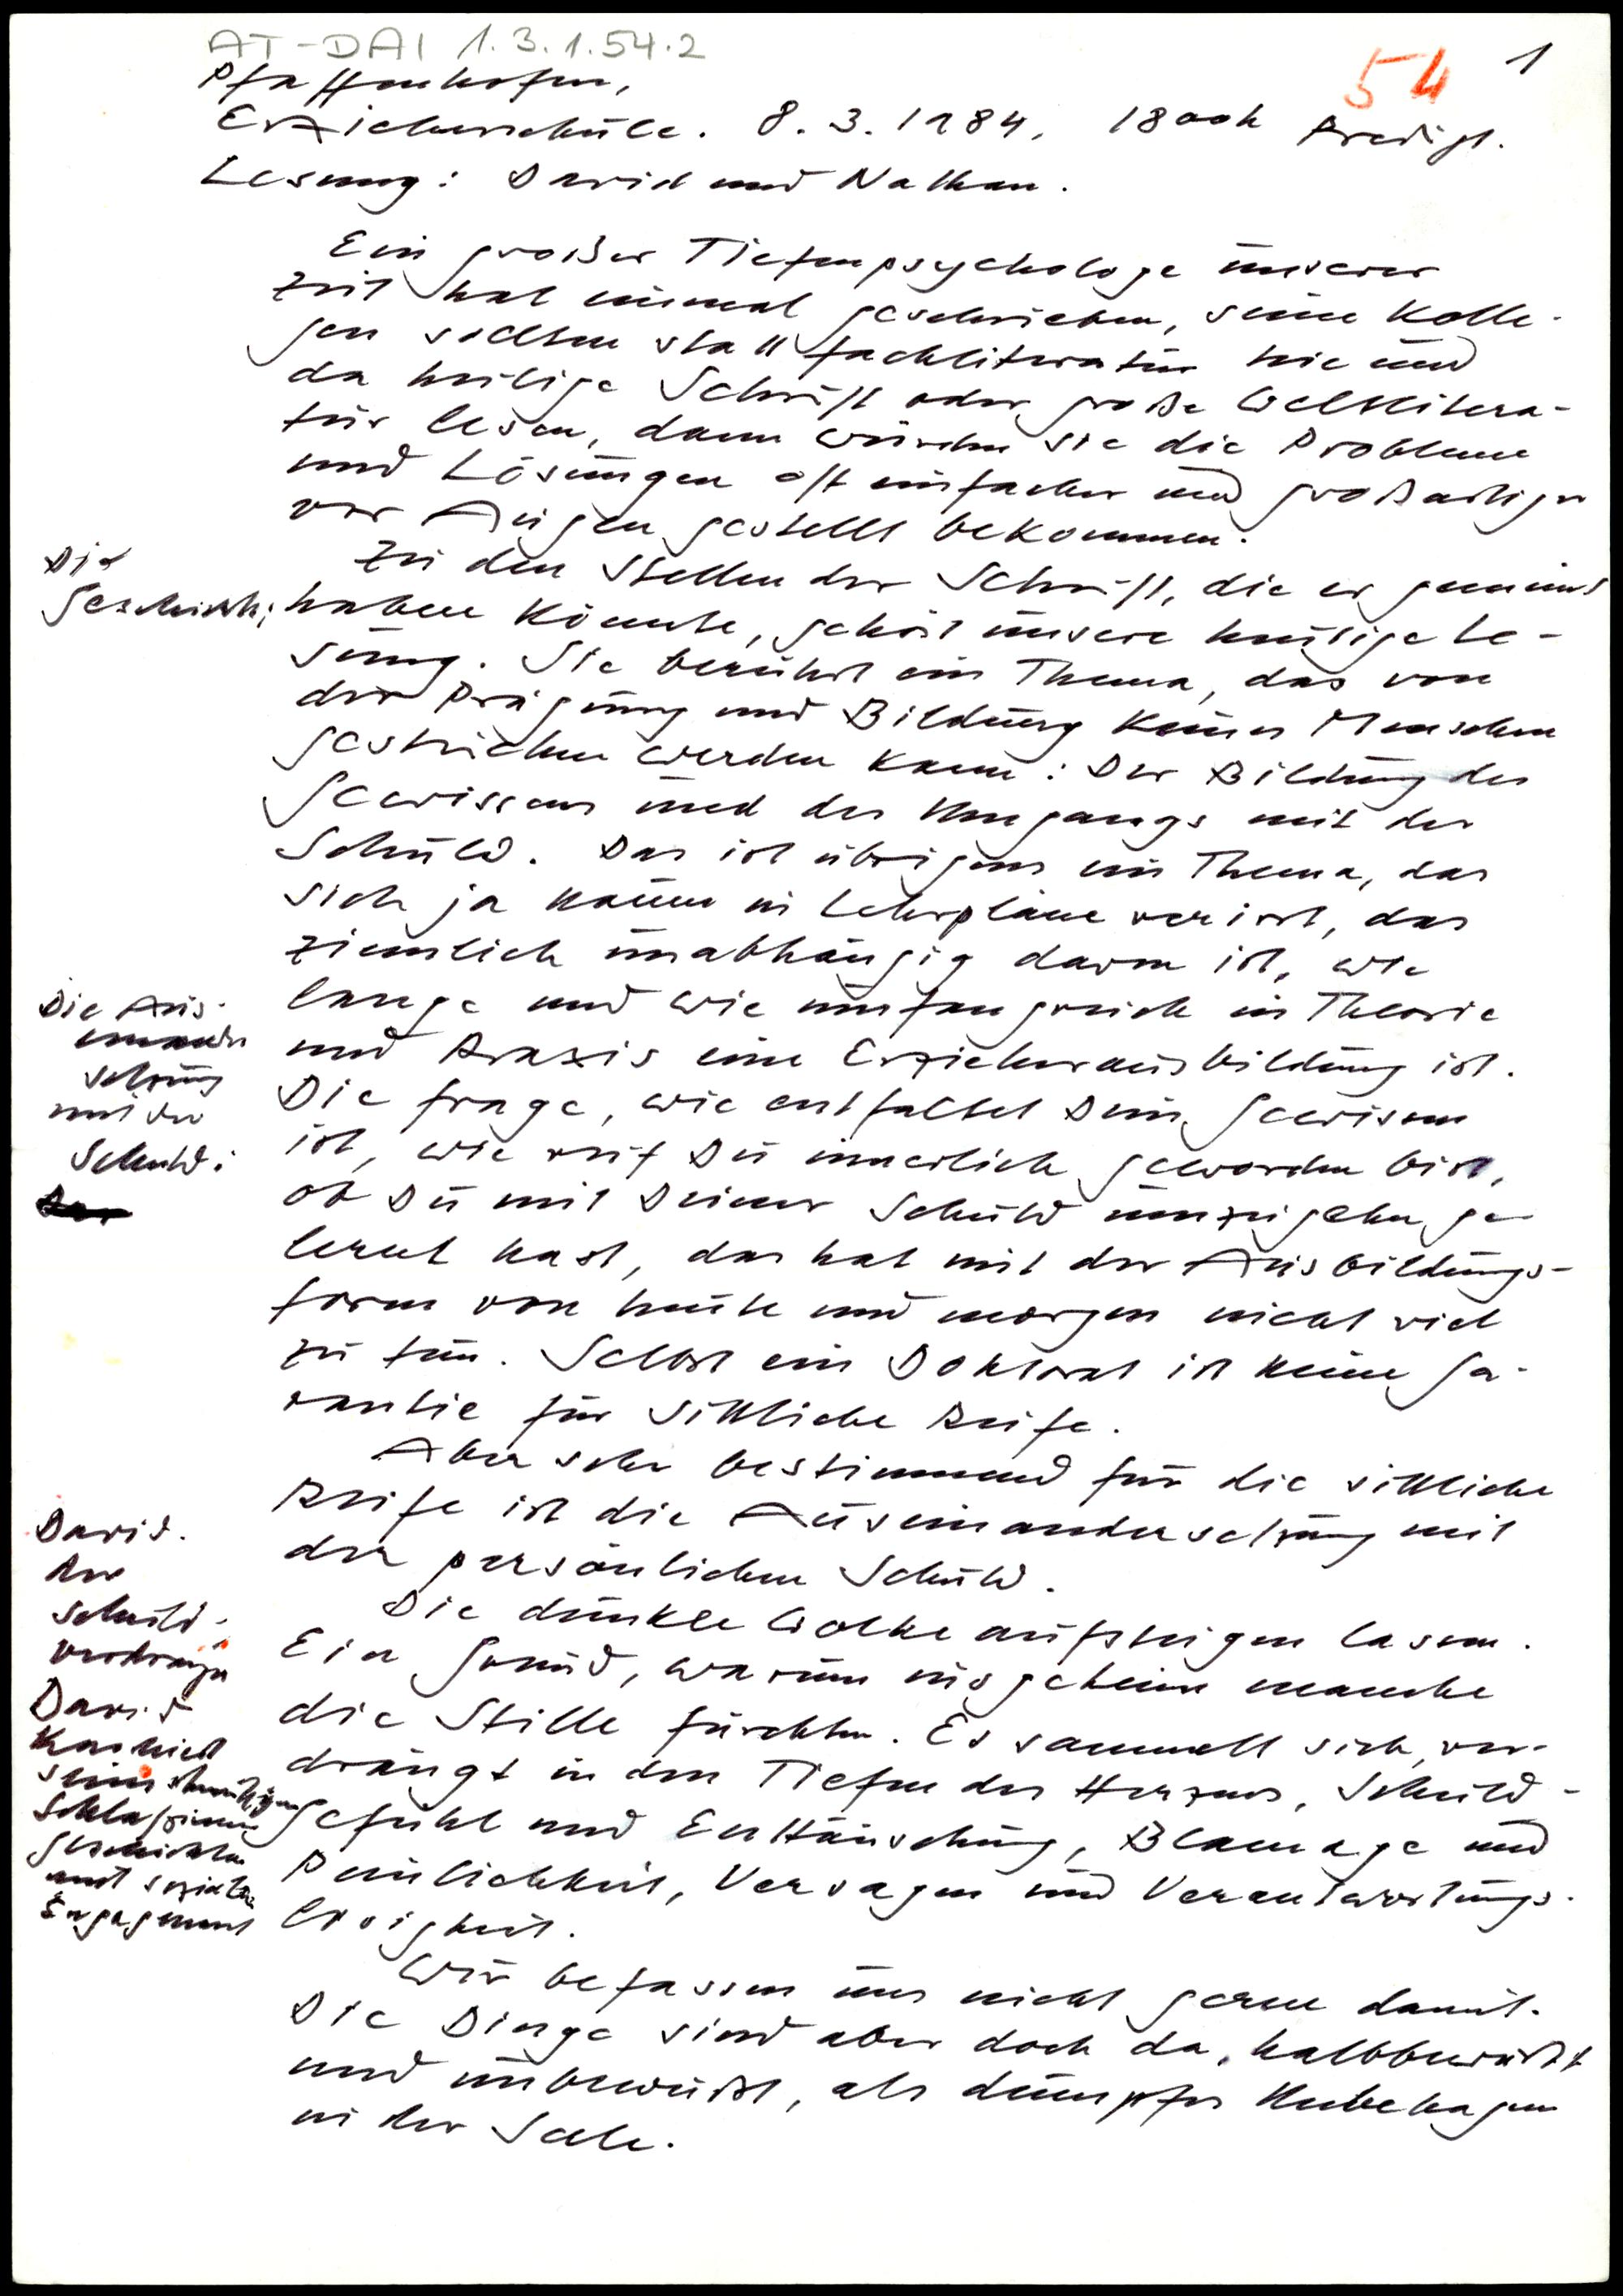 AT-DAI 1.3.1.54.2
54 1
Pfaffenhofen,
Erzieherschule. 8.3.1984, 18 00h Predigt.
Lesung: David und Nathan.
Ein großer Tiefenpsychologe unserer
Zeit hat einmal geschrieben, seine Kolle-
gen sollten statt Fachliteratur hie und
da heilige Schrift oder große Weltlitera-
tur lesen, dann würden sie die Probleme
und Lösungen oft einfacher und großartiger
vor Augen gestellt bekommen.
Zu den Stellen der Schrift, die er gemeint
haben könnte, gehört unsere heutige Le-
sung. Sie berührt ein Thema, das von
der Prägung und Bildung keines Menschen
gestrichen werden kann: Der Bildung des
Gewissens und des Umgangs mit der
Schuld. Das ist übrigens ein Thema, das
sich ja kaum in Lehrpläne verirrt, das
ziemlich unabhängig davon ist, wie
lange und wie umfangreich in Theorie
und Praxis eine Erzieherausbildung ist.
Die Frage, wie entfaltet Dein Gewissen
ist, wie reif Du innerlich geworden bist,
ob Du mit Deiner Schuld umzugehen ge-
lernt hast, das hat mit der Ausbildungs-
form von heute und morgen nicht viel
zu tun. Selbst ein Doktorat ist keine Ga-
rantie für sittliche Reife.
Aber sehr bestimmend für die sittliche
Reife ist die Auseinandersetzung mit
der persönlichen Schuld.
Die dunkle Wolke aufsteigen lassen.
Ein Grund, warum insgeheim manche
die Stille fürchten. Es sammelt sich, ver-
drängt in den Tiefen des Herzens, Schuld-
gefühl und Enttäuschung, Blamage und
Peinlichkeit, Versagen und Verantwortungs-
losigkeit.
Wir befassen uns nicht gerne damit.
Die Dinge sind aber doch da, halbbewußt
und unbewußt, als dumpfes Unbehagen
in der Seele.
Die
Geschichte;
Die Aus-
einander
setzung
mit der
Schuld:
David.
der
Schuld-
verdränger
David
kaschiert
seine
Schlafzimmer
geschichten
mit sozialem
Engagement